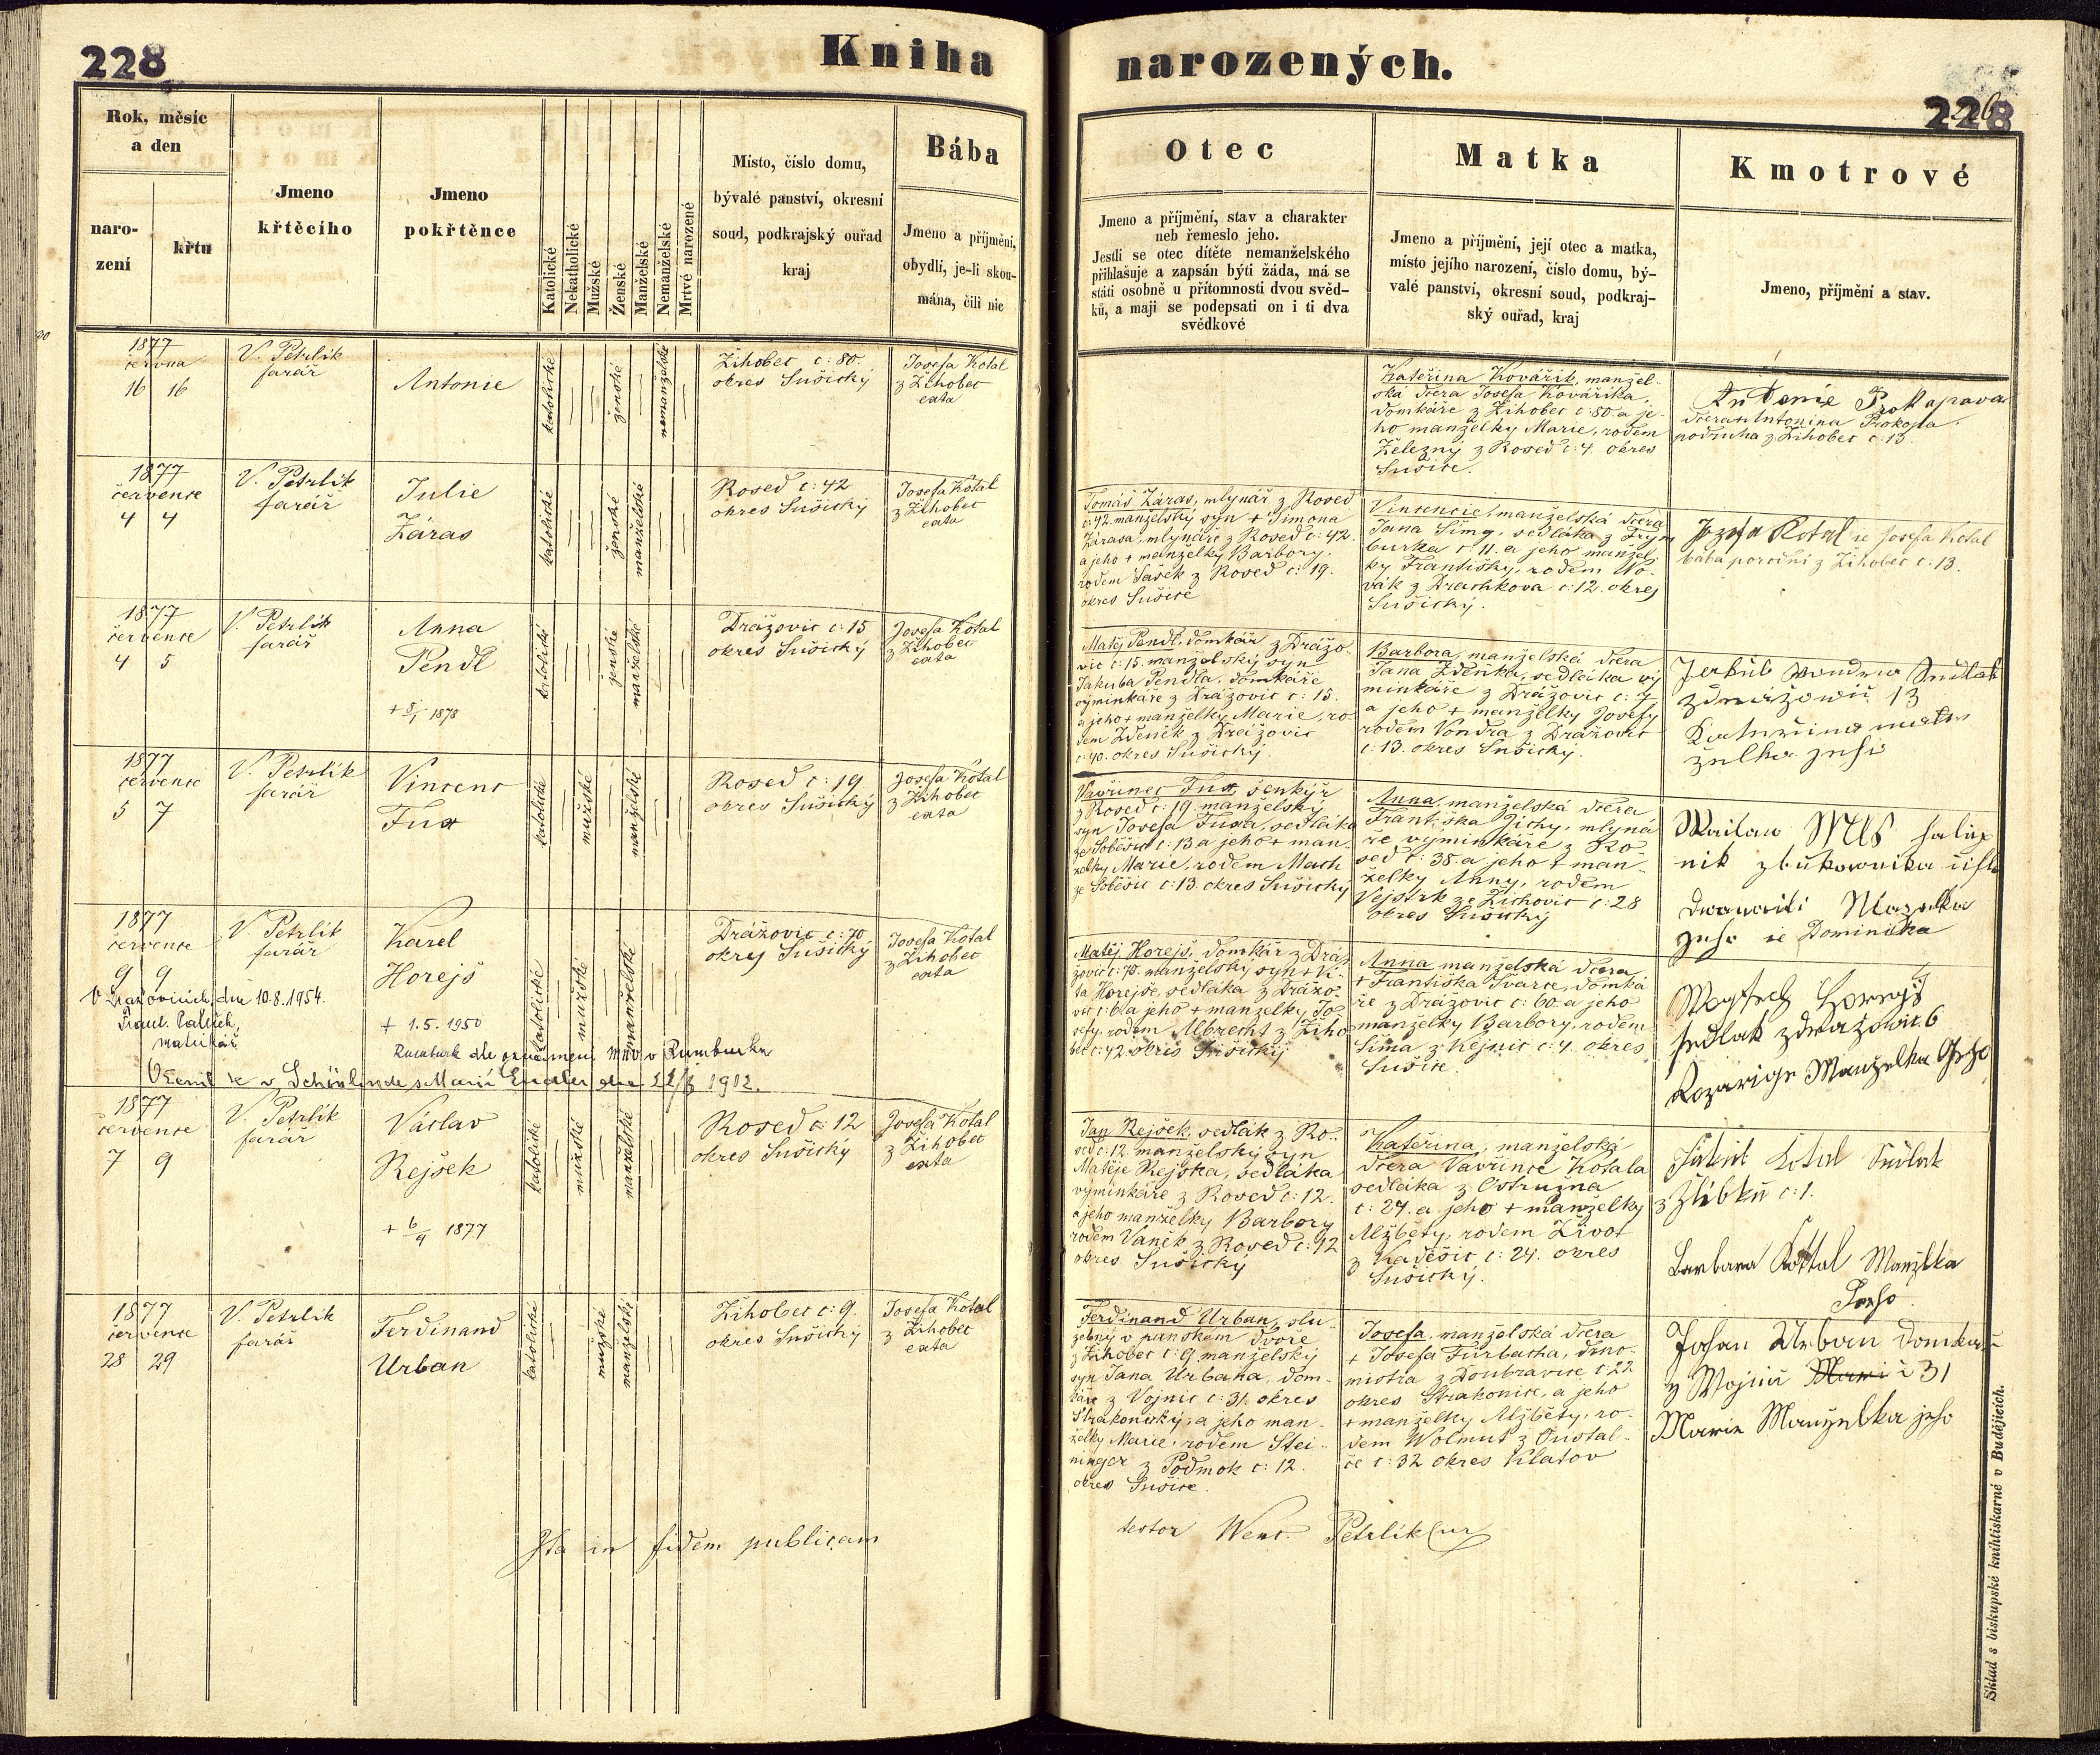 228
Kniha
narozených.
228
Rok, měsíc
a den
naro-
zení
křtu
Jmeno
křtěcího
Jmeno
pokřtěnce
Katolické
Nekatholické
Mužské
Ženské
Manželské
Nemanželské
Mrtvě narozené
Místo, číslo domu,
bývalé panství, okresní
soud, podkrajský ouřad
kraj
Bába
Jmeno a příjmění,
obydlí, je-li skou-
mána, čili nic
Otec
Jmeno a příjmění, stav a charakter
neb řemeslo jeho.
Jestli se otec dítěte nemanželského
přihlašuje a zapsán býti žádá, má se
státi osobně u přítomnosti dvou svěd-
ků, a mají se podepsati on i ti dva
svědkové
Matka
Jmeno a příjmění, její otec a matka,
místo jejího narození, číslo domu, bý-
valé panství, okresní soud, podkraj-
ský ouřad, kraj
Kmotrové
Jmeno, příjmění a stav.
1877
června
16 16
V. Petrlík
farář
Antonie
katolické
ženské
nemanželské
Žihobec c: 80.
okres Sušický
Josefa Kotal
z Žihobec
exta
Kateřina Kovářík, manžel-
ská dcera Josefa Kovářika,
domkáře z Žihobec c: 80 a je-
ho manželky Marie, rodem
Železný z Rosed c: 4. okres
Sušice.
Antonie Prokopova
dcera Antonina Prokopa
podruha z Žihobec c: 13.
1877
července
4 4
V. Petrlík
farář
Julie
Záras
katolické
ženské
manželské
Rosed c: 42
okres Sušický
Josefa Kotal
z Žihobec
exta
Tomáš Záras, mlynář z Rosed
c: 42. manželský syn + Šimona
Zárasa, mlynáře z Rosed c: 42.
a jeho + manželky Barbory,
rodem Sašek z Rosed c: 19.
okres Sušice
Vincencie, manželská dcera
Jana Šímy, sedláka z Frym
burka c: 11. a jeho manžel-
ky Františky, rodem No-
vák z Drachkova c: 12. okres
Sušický.
Jozefa Kotal ie Josefa Kotal
bába porodní z Žihobec c: 13.
1877
července
4 5
V. Petrlík
farář
Anna
Pendl
+ 8/1 1878
katolické
ženské
manželské
Drážovic c: 15
okres Sušický
Josefa Kotal
z Žihobec
exta
Matěj Pendl, domkář z Drážo-
vic c: 15. manželský syn
Jakuba Pendla, domkáře
výminkáře z Drážovic c: 15.
a jeho + manželky Marie, ro-
dem Zdeněk z Drážovic
c: 40. okres Sušický.
Barbora, manželská dcera
Jana Zdeňka, sedláka vý
minkáře z Drážovic c: 7
a jeho + manželky Josefy
rodem Vondra z Drážovic
c: 13. okres Sušický.
Jakub Vondra Sedlak
z Dražowic 13
Katerina man
želka jeho
1877
července
5 7
V. Petrlík
farář
Vincenc
Fux
katolické
mužské
manželské
Rosed c: 19
okres Sušický
Josefa Kotal
z Žihobec
exta
Vavřinec Fux, šenkýř
z Rosed c: 19. manželský
syn Josefa Fuxa, sedláka
ze Soběšic c: 13 a jeho + man-
želky Marie, rodem Mach
ze Soběšic c: 13. okres Sušický
Anna, manželská dcera
Františka Jichy, mlyná
ře výminkáře z Ro-
sed c: 38. a jeho + man-
želky Anny, rodem
Vejskrk ze Žichovic c: 28
okres Sušický
nik z bukovnika čislo
dwanacti Manzelka
jeho ie Dominika
1877
července
9 9
V. Petrlík
farář
Karel
Horejš
+ 1.5.1950
V Dražovicích, dne 10.8.1954.
matrikář
Rumburk dle oznámení MNV v Rumburku
Oženil se v Schönlinde s Marií Endler dne 22/7 1902.
katolické
mužské
manželské
Drážovic c: 70
okres Sušický
Josefa Kotal
z Žihobec
exta
Matěj Horejš, domkář z Drá-
žovic c: 70. manželský syn + Ví-
ta Horejše, sedláka z Drážo-
vic c: 6 a jeho + manželky Jo-
sefy, rodem Albrecht z Žiho
bec c: 42. okres Sušický
Anna manželská dcera
+ Františka Švarce, domká
ře z Drážovic c: 60. a jeho
manželky Barbory, rodem
Šíma z Kejnic c: 4. okres
Sušice.
Wogtech Horregs
sedlak z dražowic 6
Rozarige Manzelka Geho
1877
července
7 9
V. Petrlík
farář
Václav
Rejšek
+ 6/9 1877
katolické
mužské
manželské
Rosed c: 12
okres Sušický
Josefa Kotal
z Žihobec
exta
Jan Rejšek, sedlák z Ro-
sed c: 12. manželský syn
Matěje Rejška, sedláka
výminkáře z Rosed c: 12.
a jeho manželky Barbory
rodem Vaněk z Rosed c: 42
okres Sušický
Kateřina, manželská
dcera Vavřince Kotala
sedláka z Ostružna
c: 27. a jeho + manželky
Alžběty, rodem Život
z Kadešic c: 24. okres
Sušický.
Kotal Sedlak
z Zlíbku c: 1.
Barbara Kottal Manzlka
Jeho
1877
července
28 29
V. Petrlík
farář
Ferdinand
Urban
katolické
mužské
manželské
Žihobec c: 9.
okres Sušický
Josefa Kotal
z Žihobec
exta
Ferdinand Urban, slu-
žebný v panském dvoře
z Žihobec c: 9 manželský
syn Jana Urbana, dom-
káře z Vojnic c: 31. okres
Strakonický, a jeho man-
želky Marie, rodem Stei-
ninger z Podmok c: 12.
okres Sušice.
Josefa, manželská dcera
+ Josefa Furbacha, drno-
mistra z Doubravice c: 22
okres Strakonice, a jeho
+ manželky Alžběty, ro-
dem Wolmut z Oustal-
če c: 32 okres Klatov
Johan Urban domkař
z Wojnic č 31
Marie Manzelka jeho
Ita in fidem publicam
testor Wenc. Petrlík
Sklad s biskupské knihtiskárně v Budějicích.